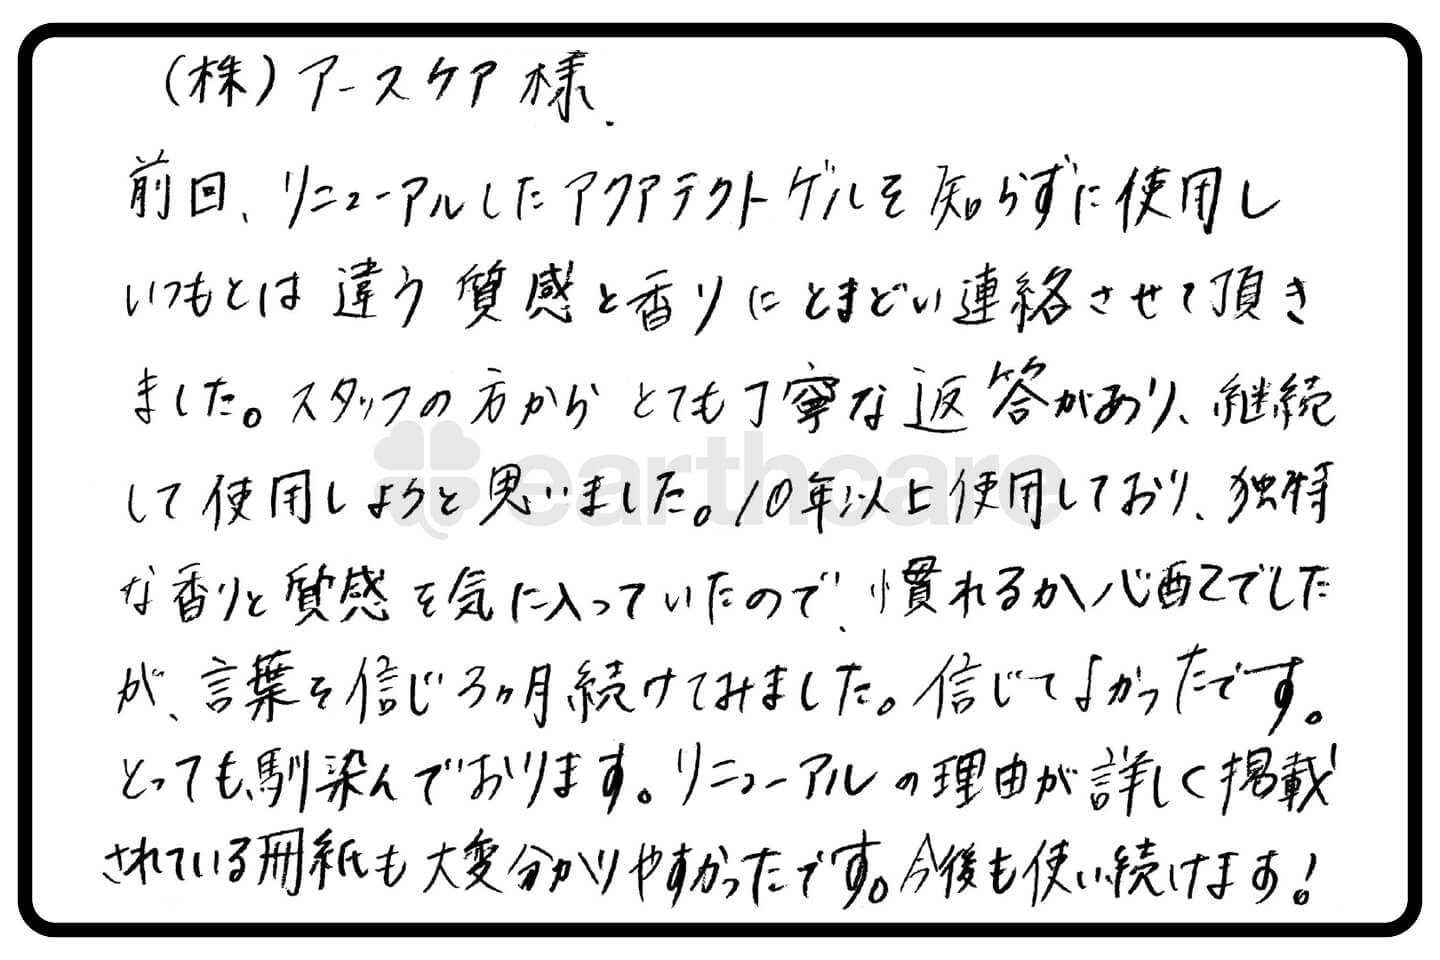 (株)アースケア様.
前回、リニューアルしたアクアテクトゲルを知らずに使用し
いつもとは違う質感と香りにとまどい連絡させて頂き
ました。スタッフの方からとても丁寧な返答があり、継続
して使用しようと思いました。10年以上使用しており、独特
な香りと質感を気に入っていたので、慣れるか心配でした
が、言葉を信じ3ヶ月続けてみました。信じてよかったです。
とっても馴染んでおります。リニューアルの理由が詳しく掲載
されている冊紙も大変分かりやすかったです。今後も使い続けます!
earthcare